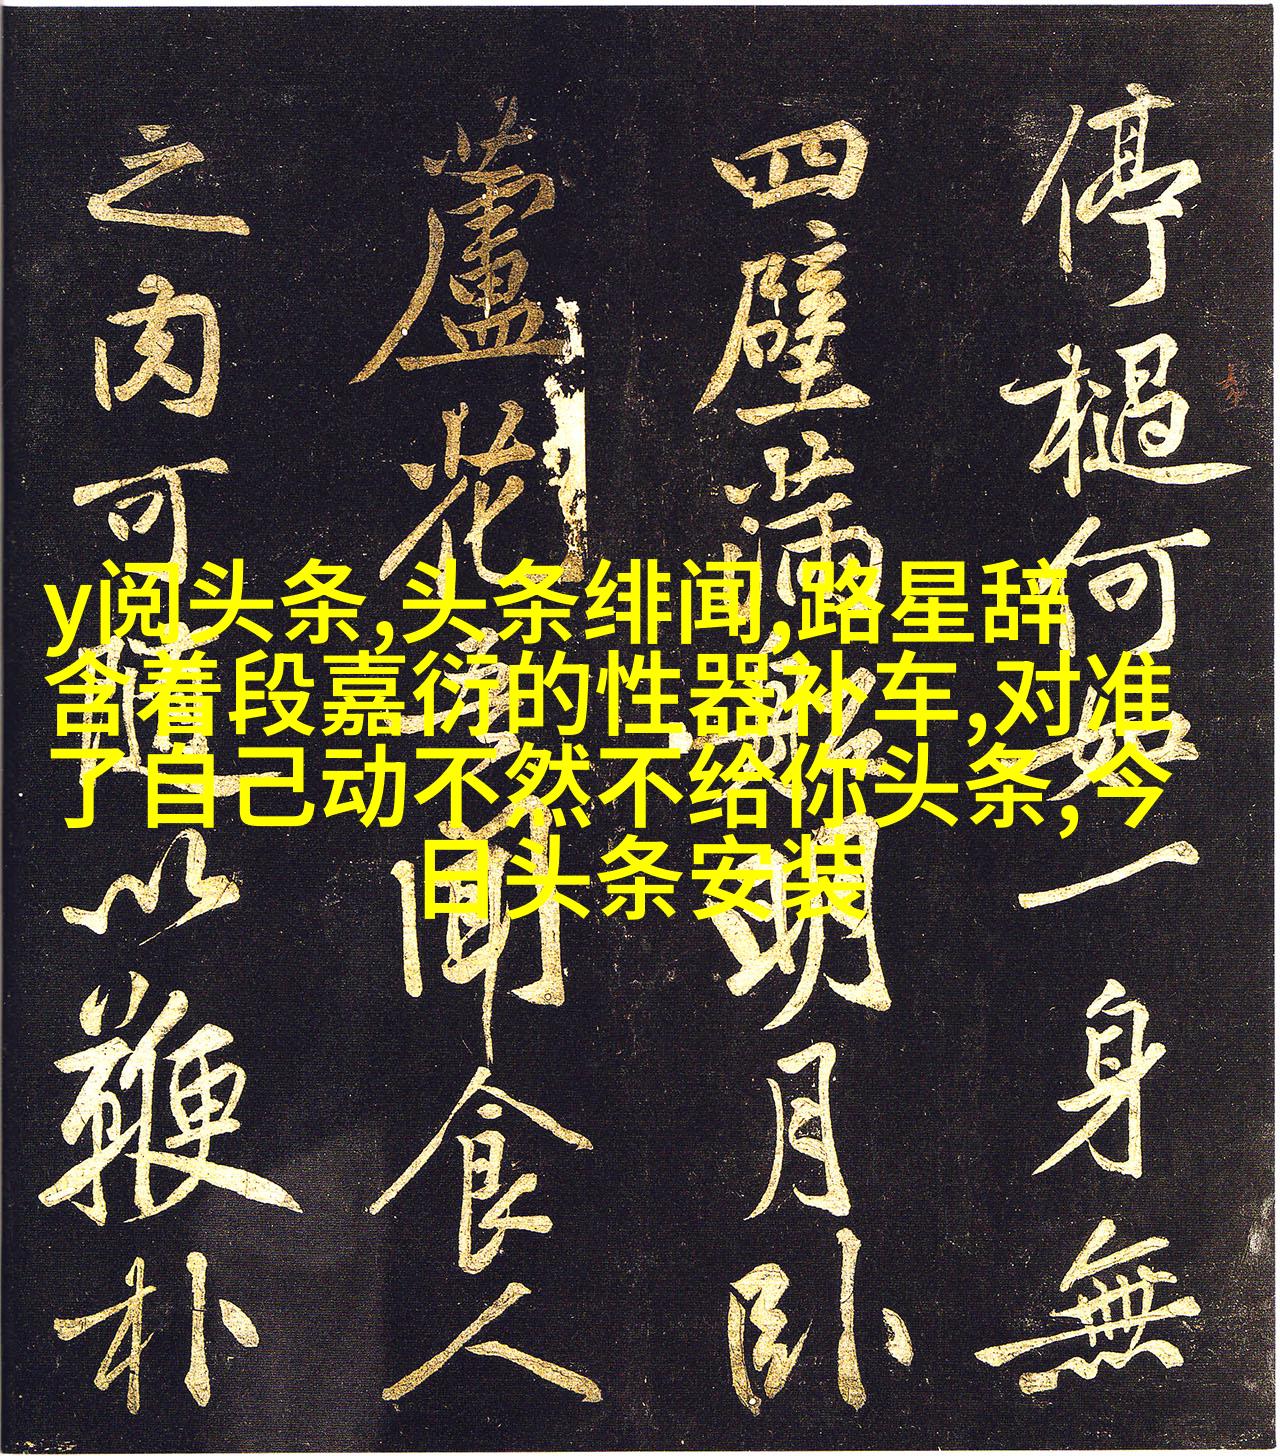 y阅头条,头条绯闻,路星辞
含着段嘉衍的性器补车,对准
了自己动不然不给你头条,今
日头条安装
停檛何如一身無
四壁滿船明月卧
蘆花亦聞食人
之肉可隨以鞭朴